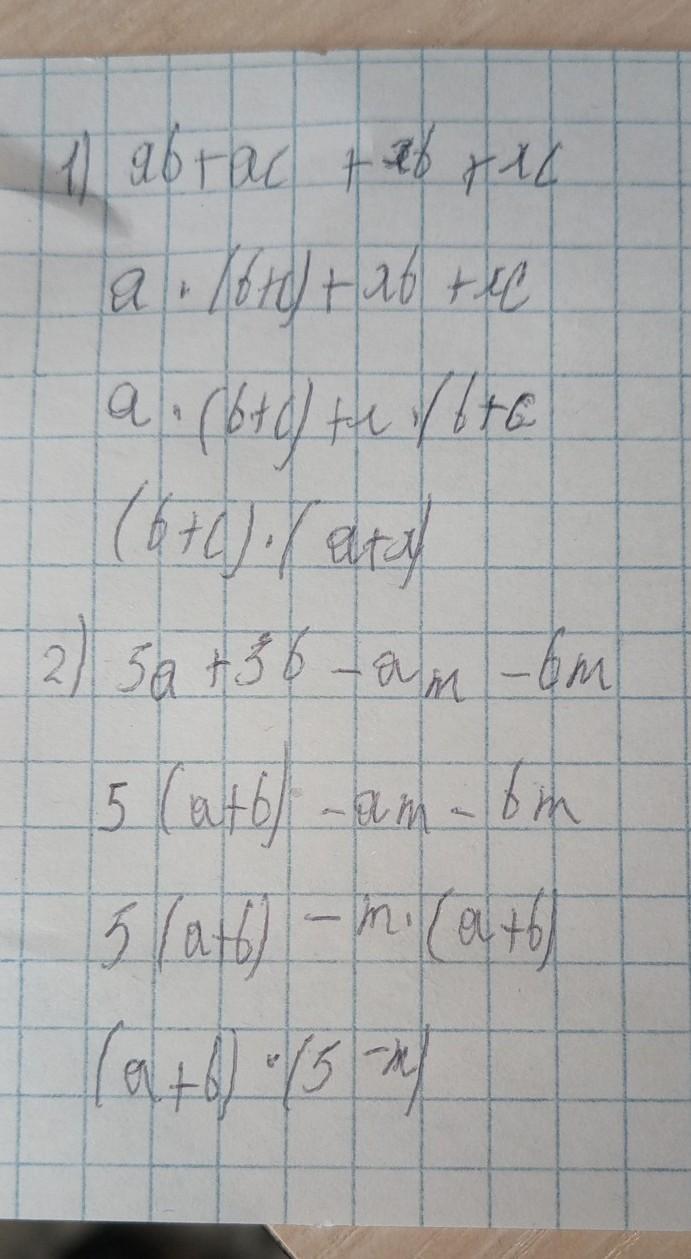 1) ab+ac +xb +xc
a · (b+c)+xb +xc
a · (b+c)+x ·(b+c
(b+c)·(a+x)
2) 5a +5b -am -bm
5 (a+b) -am - bm
5 (a+b) - m·(a+b)
(a+b) · (5 -m)